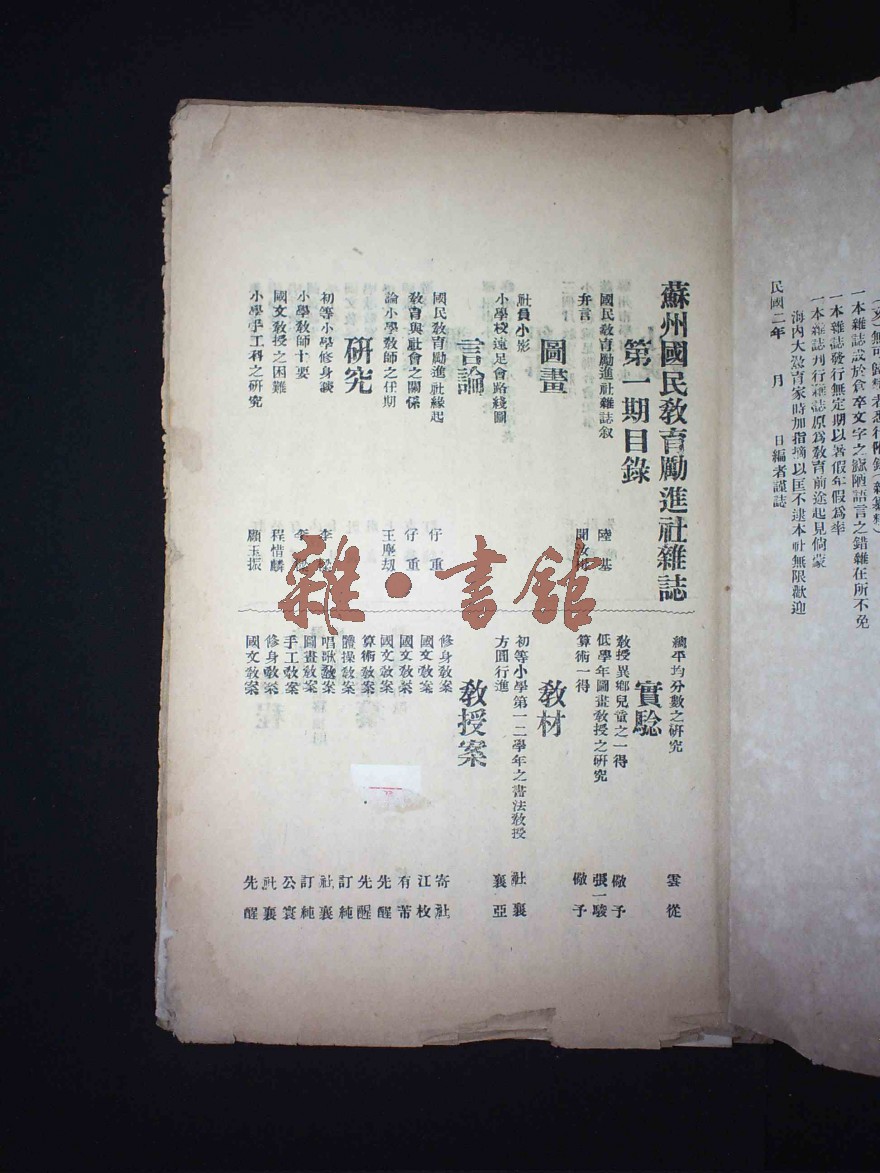 一本雜誌成於倉卒文字之謬陋語言之錯雜在所不免
一本雜誌發行無定期以暑假年假爲率
一本雜誌刊行雜誌原爲教育前途起見倘蒙
海內大教育家時加指摘以匡不逮本社無限歡迎
民國二年　月　日編者謹誌
蘇州國民教育勵進社雜誌
第一期目錄
國民教育勵進社雜誌敘　陸基
弁言
圖畫
社員小影
小學校遠足會路綫圖
言論
國民教育勵進社緣起　仔重
教育與社會之關係　仔重
論小學教師之任期　王塵刧
研究
初等小學修身談　李
小學教師十要　李
國文教授之困難　程惜麟
小學手工科之研究　顧玉振
總平均分數之研究　雲從
實驗
教授異鄉兒童之一得　儆予
低學年圖畫教授之研究　張一駿
算術一得　儆予
教材
初等小學第一二學年之書法教授　社襄
方圓行進　襄亞
教授案
修身教案　寄社
國文教案　江枚
國文教案　有芾
國文教案　先醒
算術教案　先醒
體操教案　訂純
唱歌教案　社襄
圖畫教案　訂純
手工教案　公寰
修身教案　社襄
國文教案　先醒
雜·書館